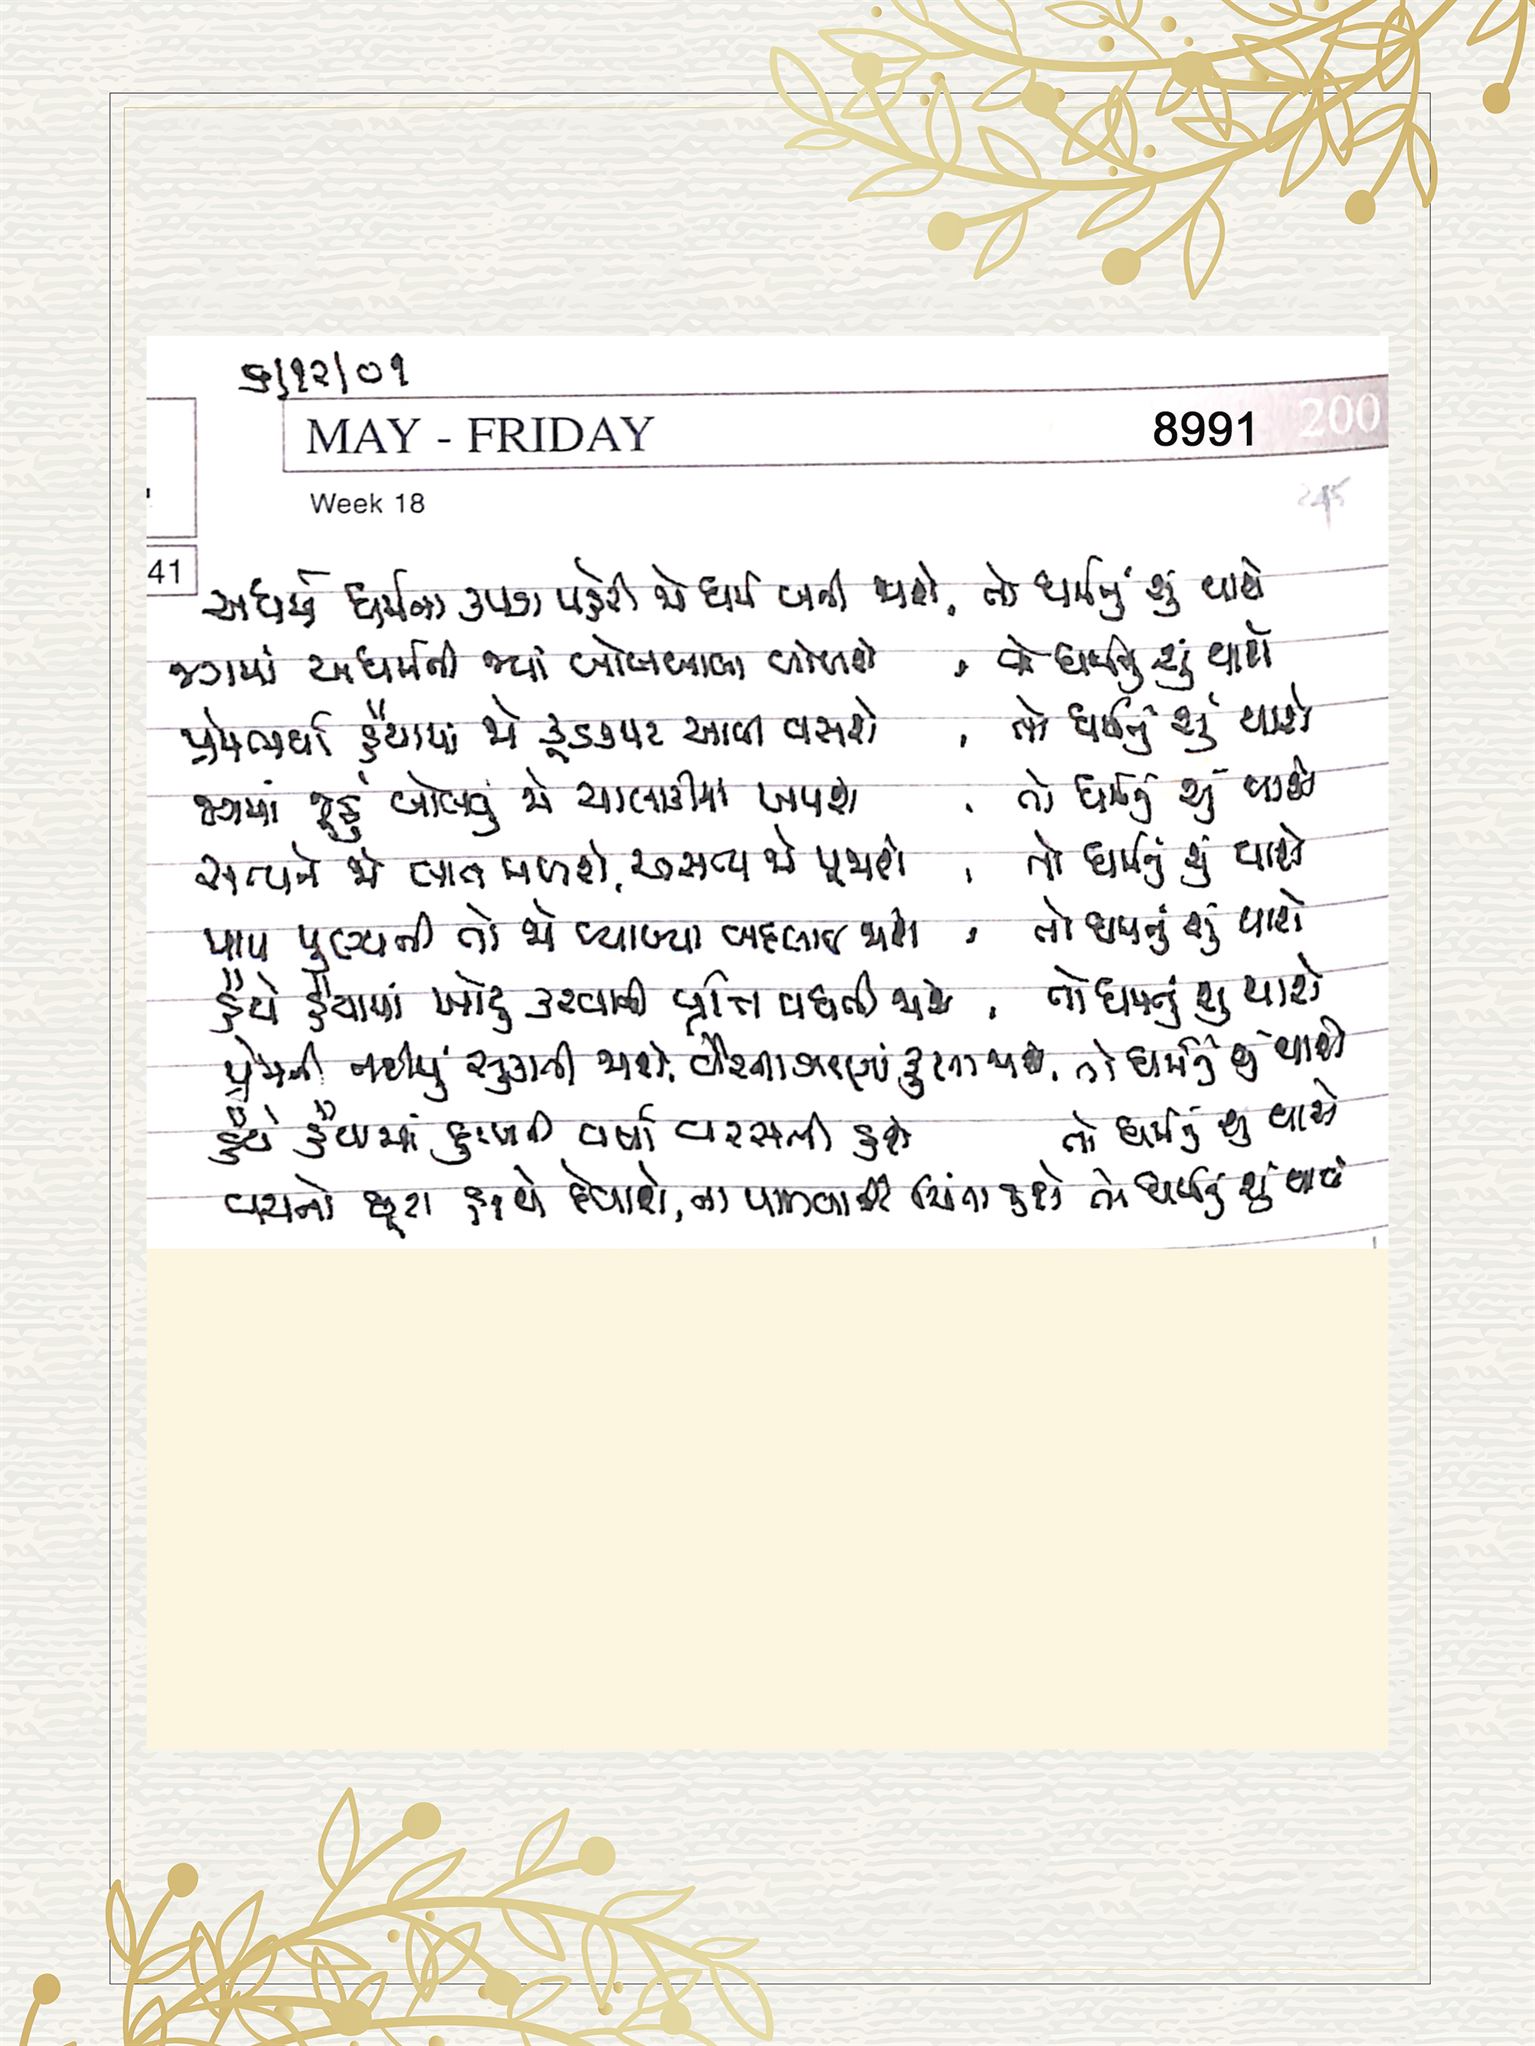 ૬/૧૨/૦૧
MAY - FRIDAY 8991 200
Week 18
41
અધર્મ ધર્મના કપડા પહેરી જો ધર્મ બની જાશે, તો ધર્મનું શું થાશે
જગમાં અધર્મની જ્યાં બોલબાલા બોલાશે , તો ધર્મનું શું થાશે
પ્રેમભર્યા હૈયામાં જો કૂડકપટ આવી વસશે , તો ધર્મનું શું થાશે
જગમાં જૂઠું બોલવું જો ચાલાકીમાં ખપશે , તો ધર્મનું શું થાશે
સત્યને જો લાત મળશે, અસત્ય જો પૂજાશે , તો ધર્મનું શું થાશે
પાપ પુણ્યની તો જો વ્યાખ્યા બદલાઈ જાશે , તો ધર્મનું શું થાશે
હૈયે હૈયામાં ખોટુ કરવાની વૃત્તિ વધતી જાશે , તો ધર્મનું શું થાશે
પ્રેમની નદીયું સુકાતી જાશે, વૈરના ઝરણાં ફુટતા જાશે, તો ધર્મનું શું થાશે
હૈયે હૈયામાં દુઃખની વર્ષા વરસતી હશે તો ધર્મનું શું થાશે
વચનો છૂટા હાથે દેવાશે, ના પાળવાની ચિંતા હશે તો ધર્મનું શું થાશે